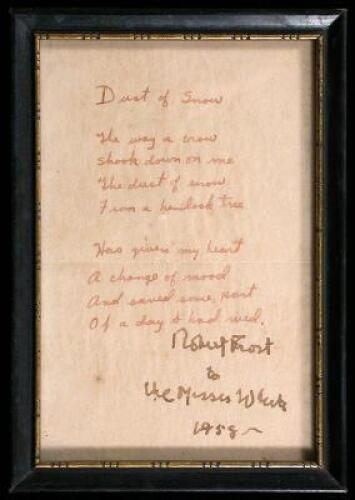 Dust of Snow
The way a crow
Shook down on me
The dust of snow
From a hemlock tree
Has given my heart
A change of mood
And saved some part
Of a day I had rued.
Robert Frost
to
the Misses
1958